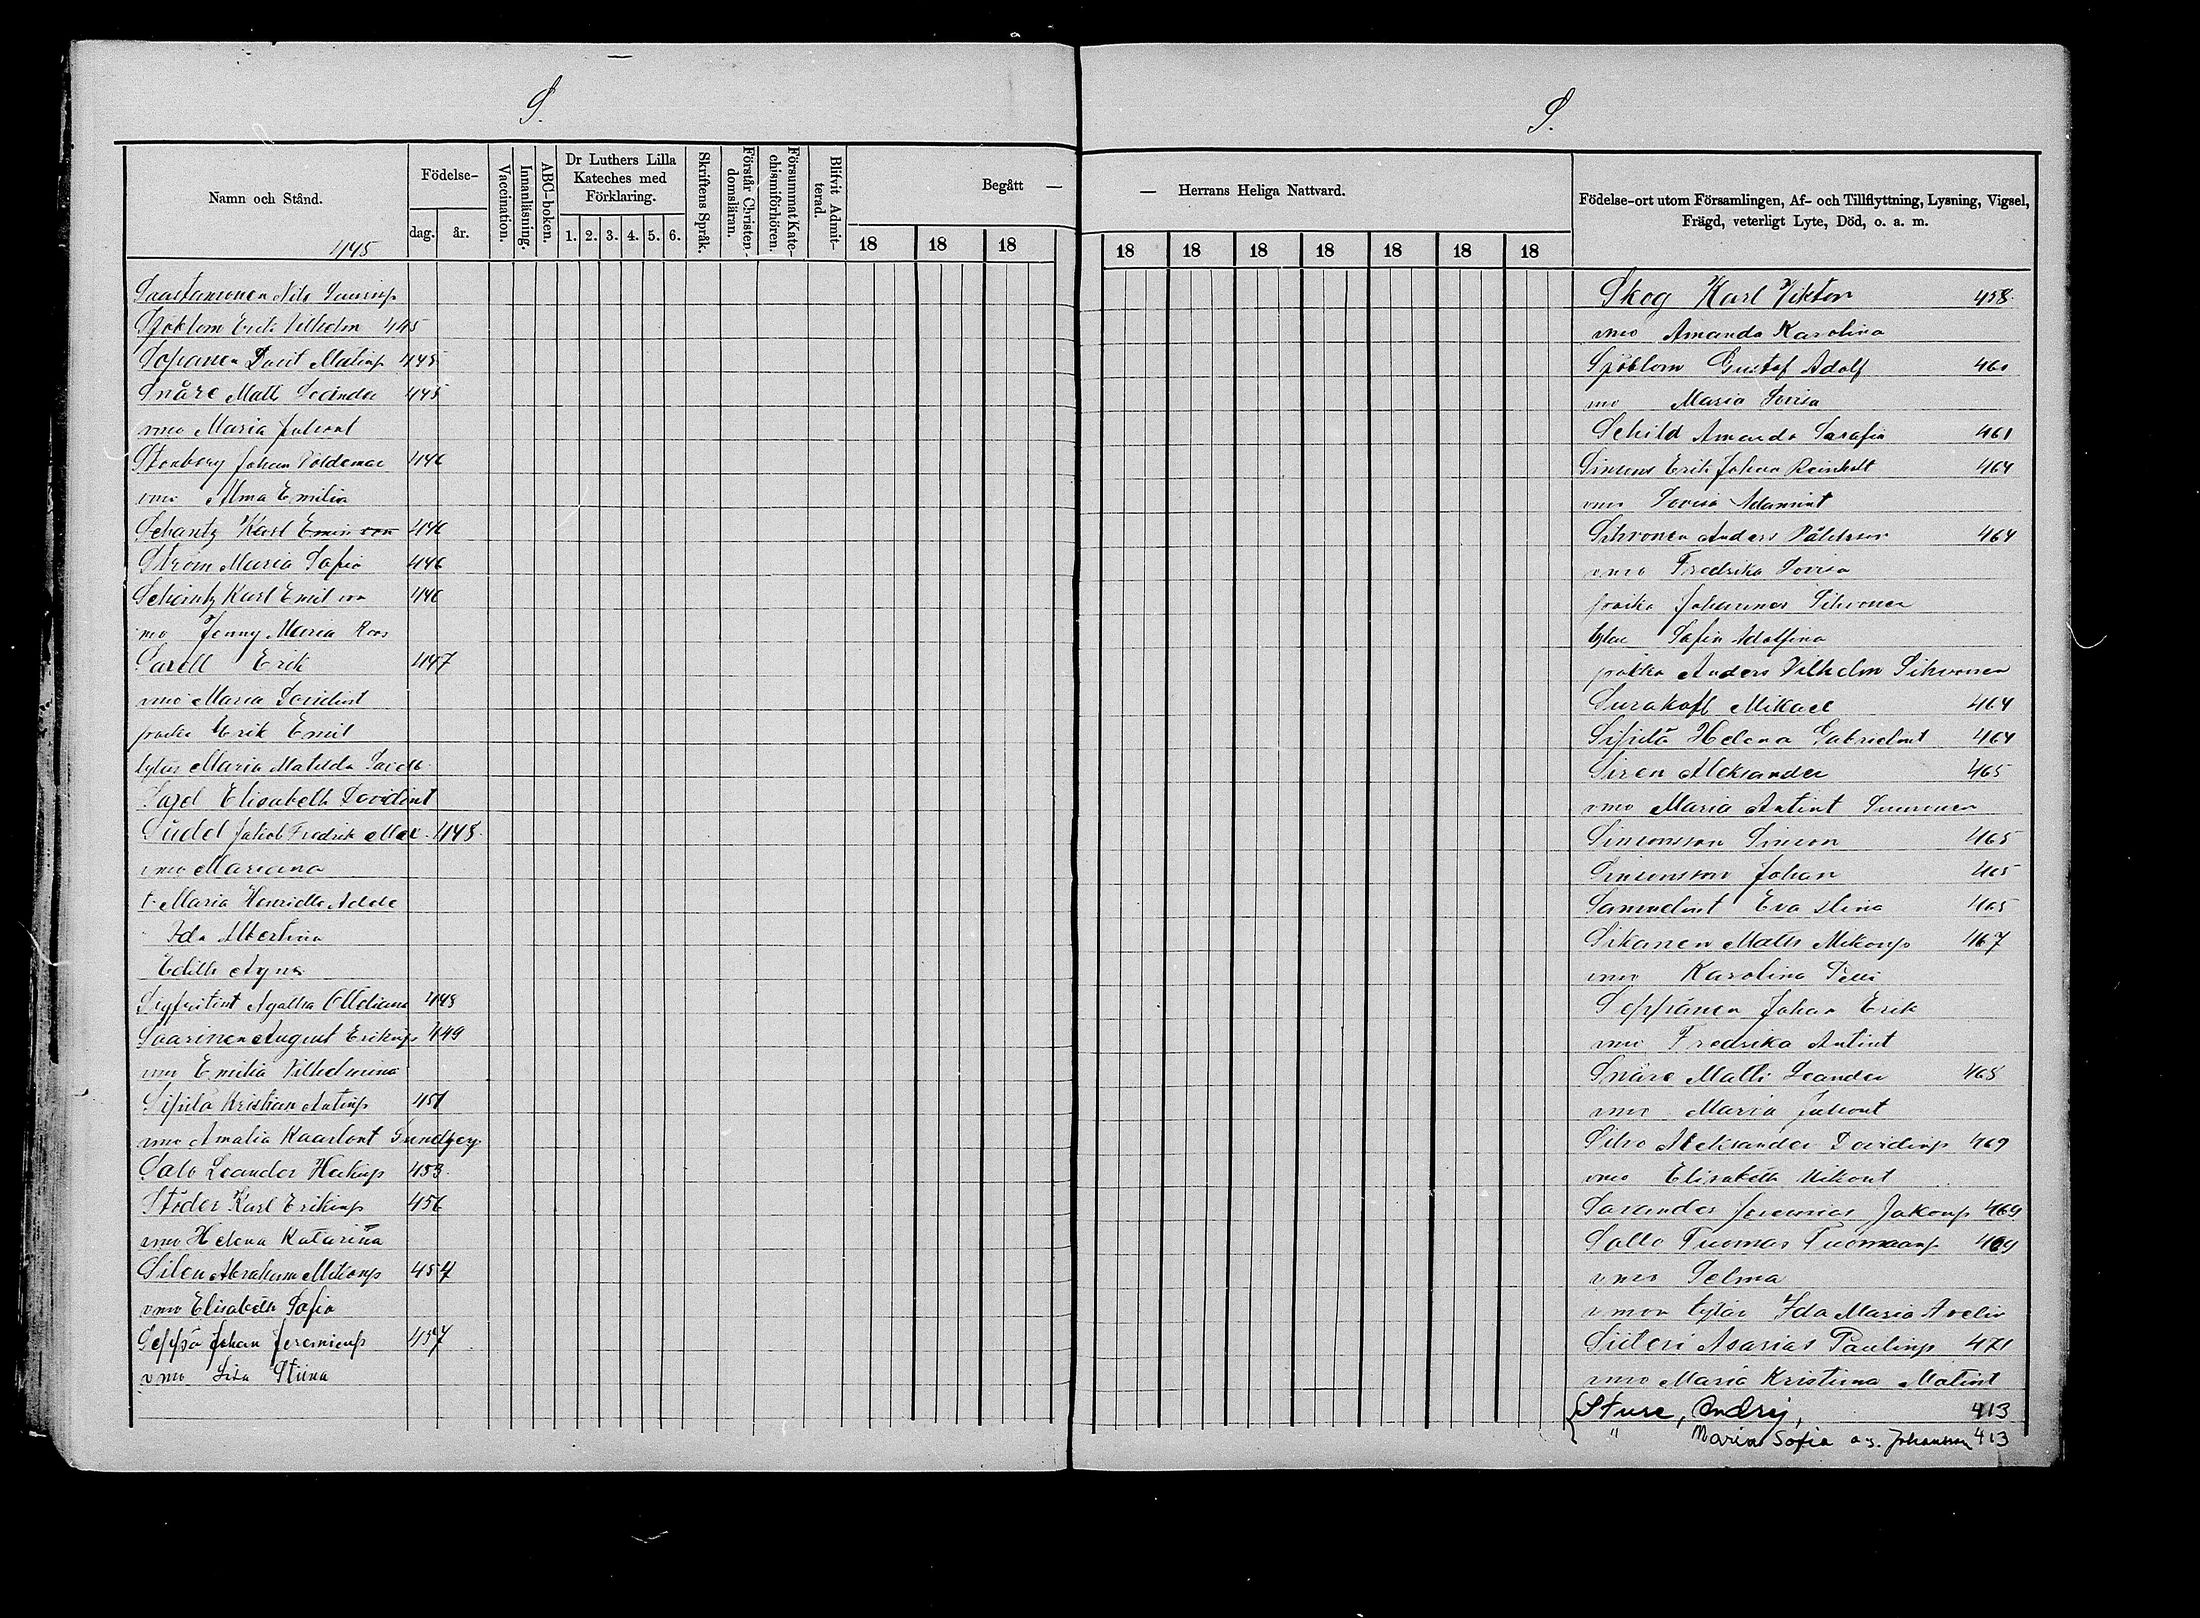 S.
Namn och Stånd.
Födelse-
dag.
år.
Vaccination.
Innanläsning.
ABC-boken.
Dr Luthers Lilla
Kateches med
Förklaring.
1. 2. 3. 4. 5. 6.
Skriftens Språk.
Förstår Christen-
domsläran.
Försummat Kate-
chismiförhören.
Blifvit Admit-
terad.
Begått —
18 18 18
445
Saastamoinen Nils
Sjöblom Erik Vilhelm 445
Sopanen Davit Matinp 445
Snåre Matti Leander 445
vmo Maria Juhont
Stenberg Johan Voldemar 446
vmo Alma Emilia
Schantz Karl Emin von 446
Ström Maria Sofia 446
Schantz Karl Emil von 446
vmo Jenny Maria Roos
Sarell Erik 447
vmo Maria Davidint
poika Erik Emil
tytär Maria Matilda Sarell
Elisabeth Davidint
Südel Jakob Fredrik Max 448
vmo Mariana
t Maria Henriette Adele
Ida Albertina
Edith Agnes
Sigfritint Agatha 448
Saarinen August Erikinp 449
vmo Emilia Vilhelmina
Sipilä Kristian Antinp 451
vmo Amalia Kaarlont Lundberg
Salo Leander Heikinp 453
Ståder Karl Erikinp 456
vmo Helena Katarina
Silen Abraham Mikonp 457
vmo Elisabeth Sofia
Seppä Johan Jeremianp 457
vmo Lisa Stiina
S.
— Herrans Heliga Nattvard.
18 18 18 18 18 18 18
Födelse-ort utom Församlingen, Af- och Tillflyttning, Lysning, Vigsel,
Frägd, veterligt Lyte, Död, o. a. m.
Skog Karl Viktor 458
vmo Amanda Karolina
Sjöblom Gustaf Adolf 460
vmo Maria Lovisa
Schild Amanda Sarafia 461
Simons Erik Johan Reinholt 464
vmo Lovisa Adamint
Sihvonen Anders Påhlsson 464
vmo Fredrika Lovisa
poika Johannes Sihvonen
tytär Sofia Adolfina
poika Anders Vilhelm Sihvonen
Surakoff Mikael 464
Sipilä Helena Gabrielint 464
Siren Aleksander 465
vmo Maria Antint Suuronen
Simonsson Simon 465
Simonsson Johan 465
Samuelint Eva Stina 465
Sikanen Matti Mikonp 467
vmo Karolina Pelli
Seppänen Johan Erik
vmo Fredrika Antint
Snäre Matti Leander 468
vmo Maria Juhont
Silvo Aleksander Davidinp 469
vmo Elisabeth Mikont
Sarander Jeremias Jakonp 469
Sallo Tuomas Tuomaanp 469
vmo Selma
vmon tytär Ida Maria Avelin
Siiteri Asarias Paulinp 471
vmo Maria Kristiina Matint
Sture, Andrej, 413
" Maria Sofia o.s. Johansson 413